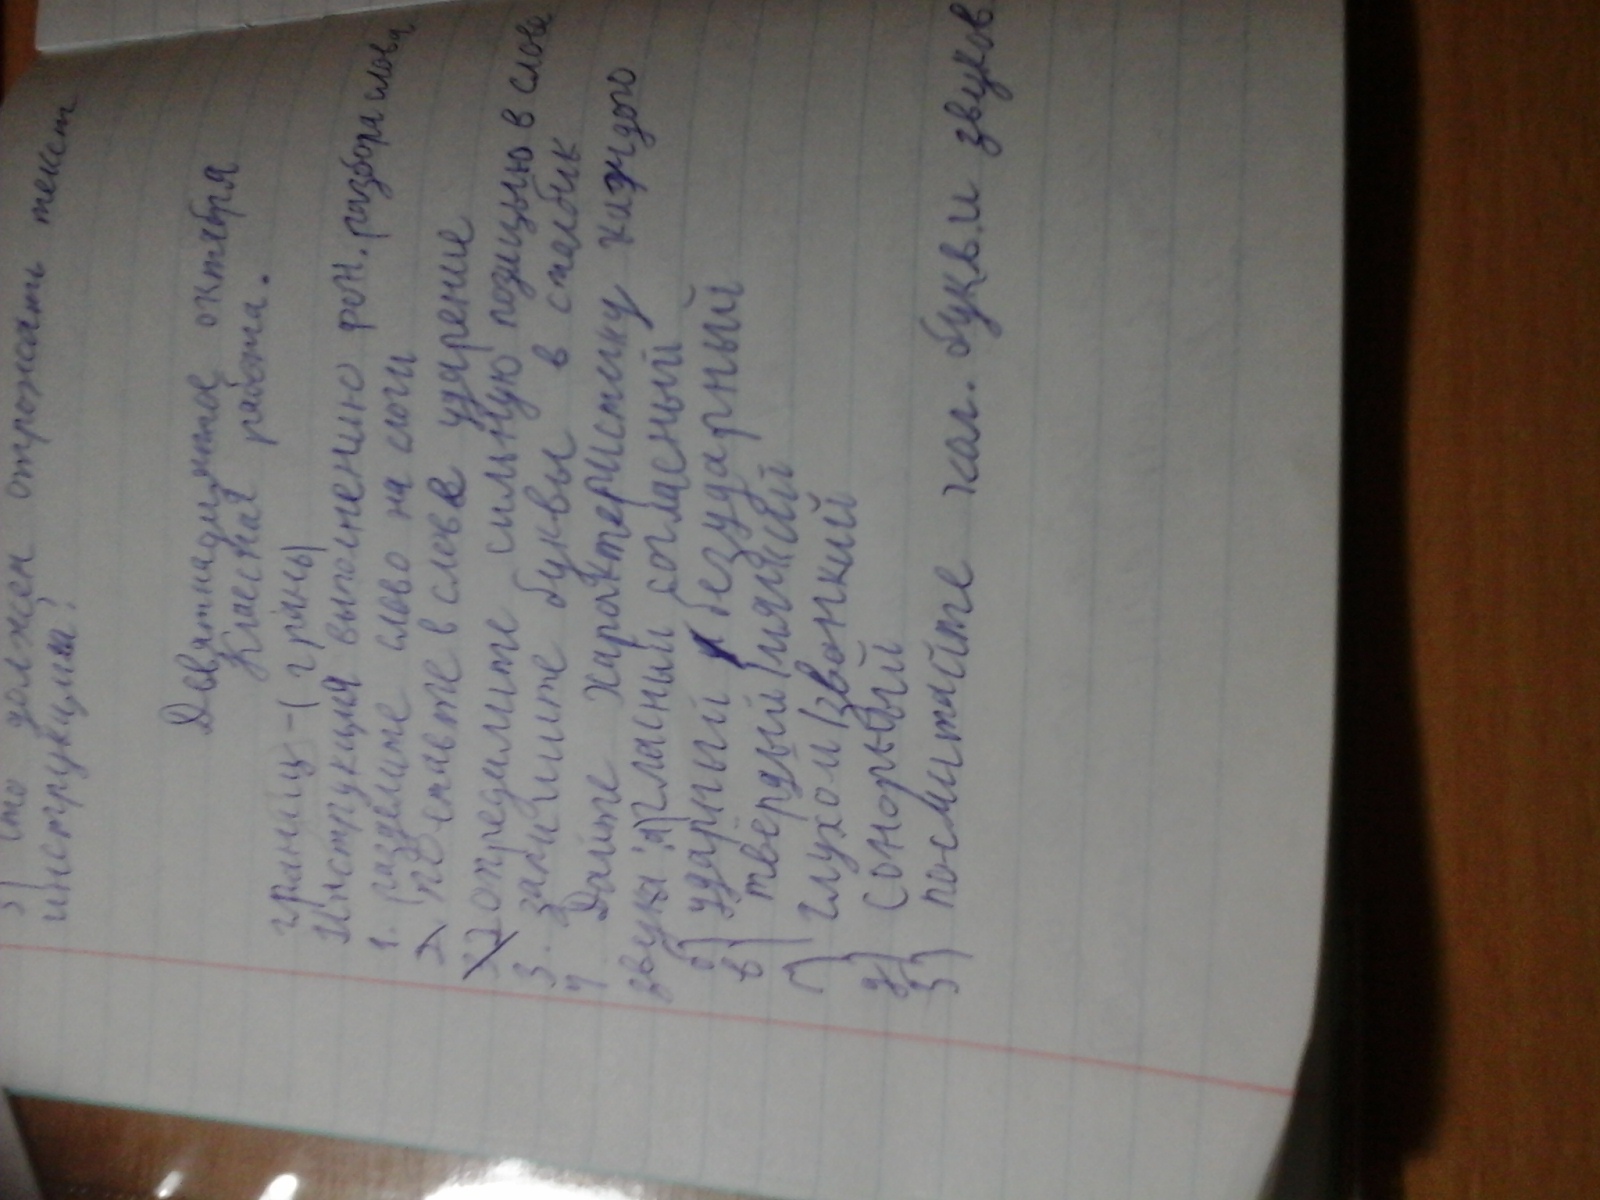 3) что должен отрожать текст
инструкции?
Девятнадцатое октября
Класная работа.
границ-(граны)
Инструкция выполнению фон. разбора слова
1. разделите слово на слоги
2 поставте в слове ударение
2 определите сильную позицыю в слове
3. запишите буквы в столбик
4 Дайте характеристику каждого
звука: а) гласный согласный
б) ударный / безударный
в) твёрдый / мягкий
г) глухой / звонкий
д) Сонорный
5) посчитайте кол. букв. и звуков